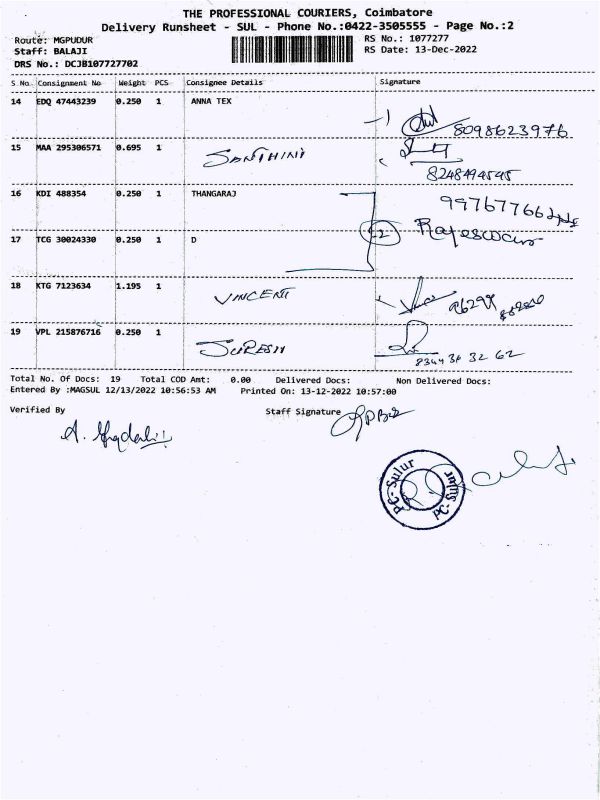 THE PROFESSIONAL COURIERS, Coimbatore
Delivery Runsheet - SUL - Phone No.:0422-3505555 - Page No.:2
Route: MGPUDUR
RS No.: 1077277
Staff: BALAJI
RS Date: 13-Dec-2022
DRS No.: DCJB107727702
S No. Consignment No Weight PCS Consignee Details Signature
14 EDQ 47443239 0.250 1 ANNA TEX
8098623976
15 MAA 295306571 0.695 1 SANTHINI
8248494545
16 KDI 488354 0.250 1 THANGARAJ
17 TCG 30024330 0.250 1 D
2
18 KTG 7123634 1.195 1 VINCENT
19 VPL 215876716 0.250 1 SURESH
8344 31 32 62
Total No. Of Docs: 19 Total COD Amt: 0.00 Delivered Docs: Non Delivered Docs:
Entered By :MAGSUL 12/13/2022 10:56:53 AM Printed On: 13-12-2022 10:57:00
Verified By Staff Signature
PC-Sulur
PC-Sulur